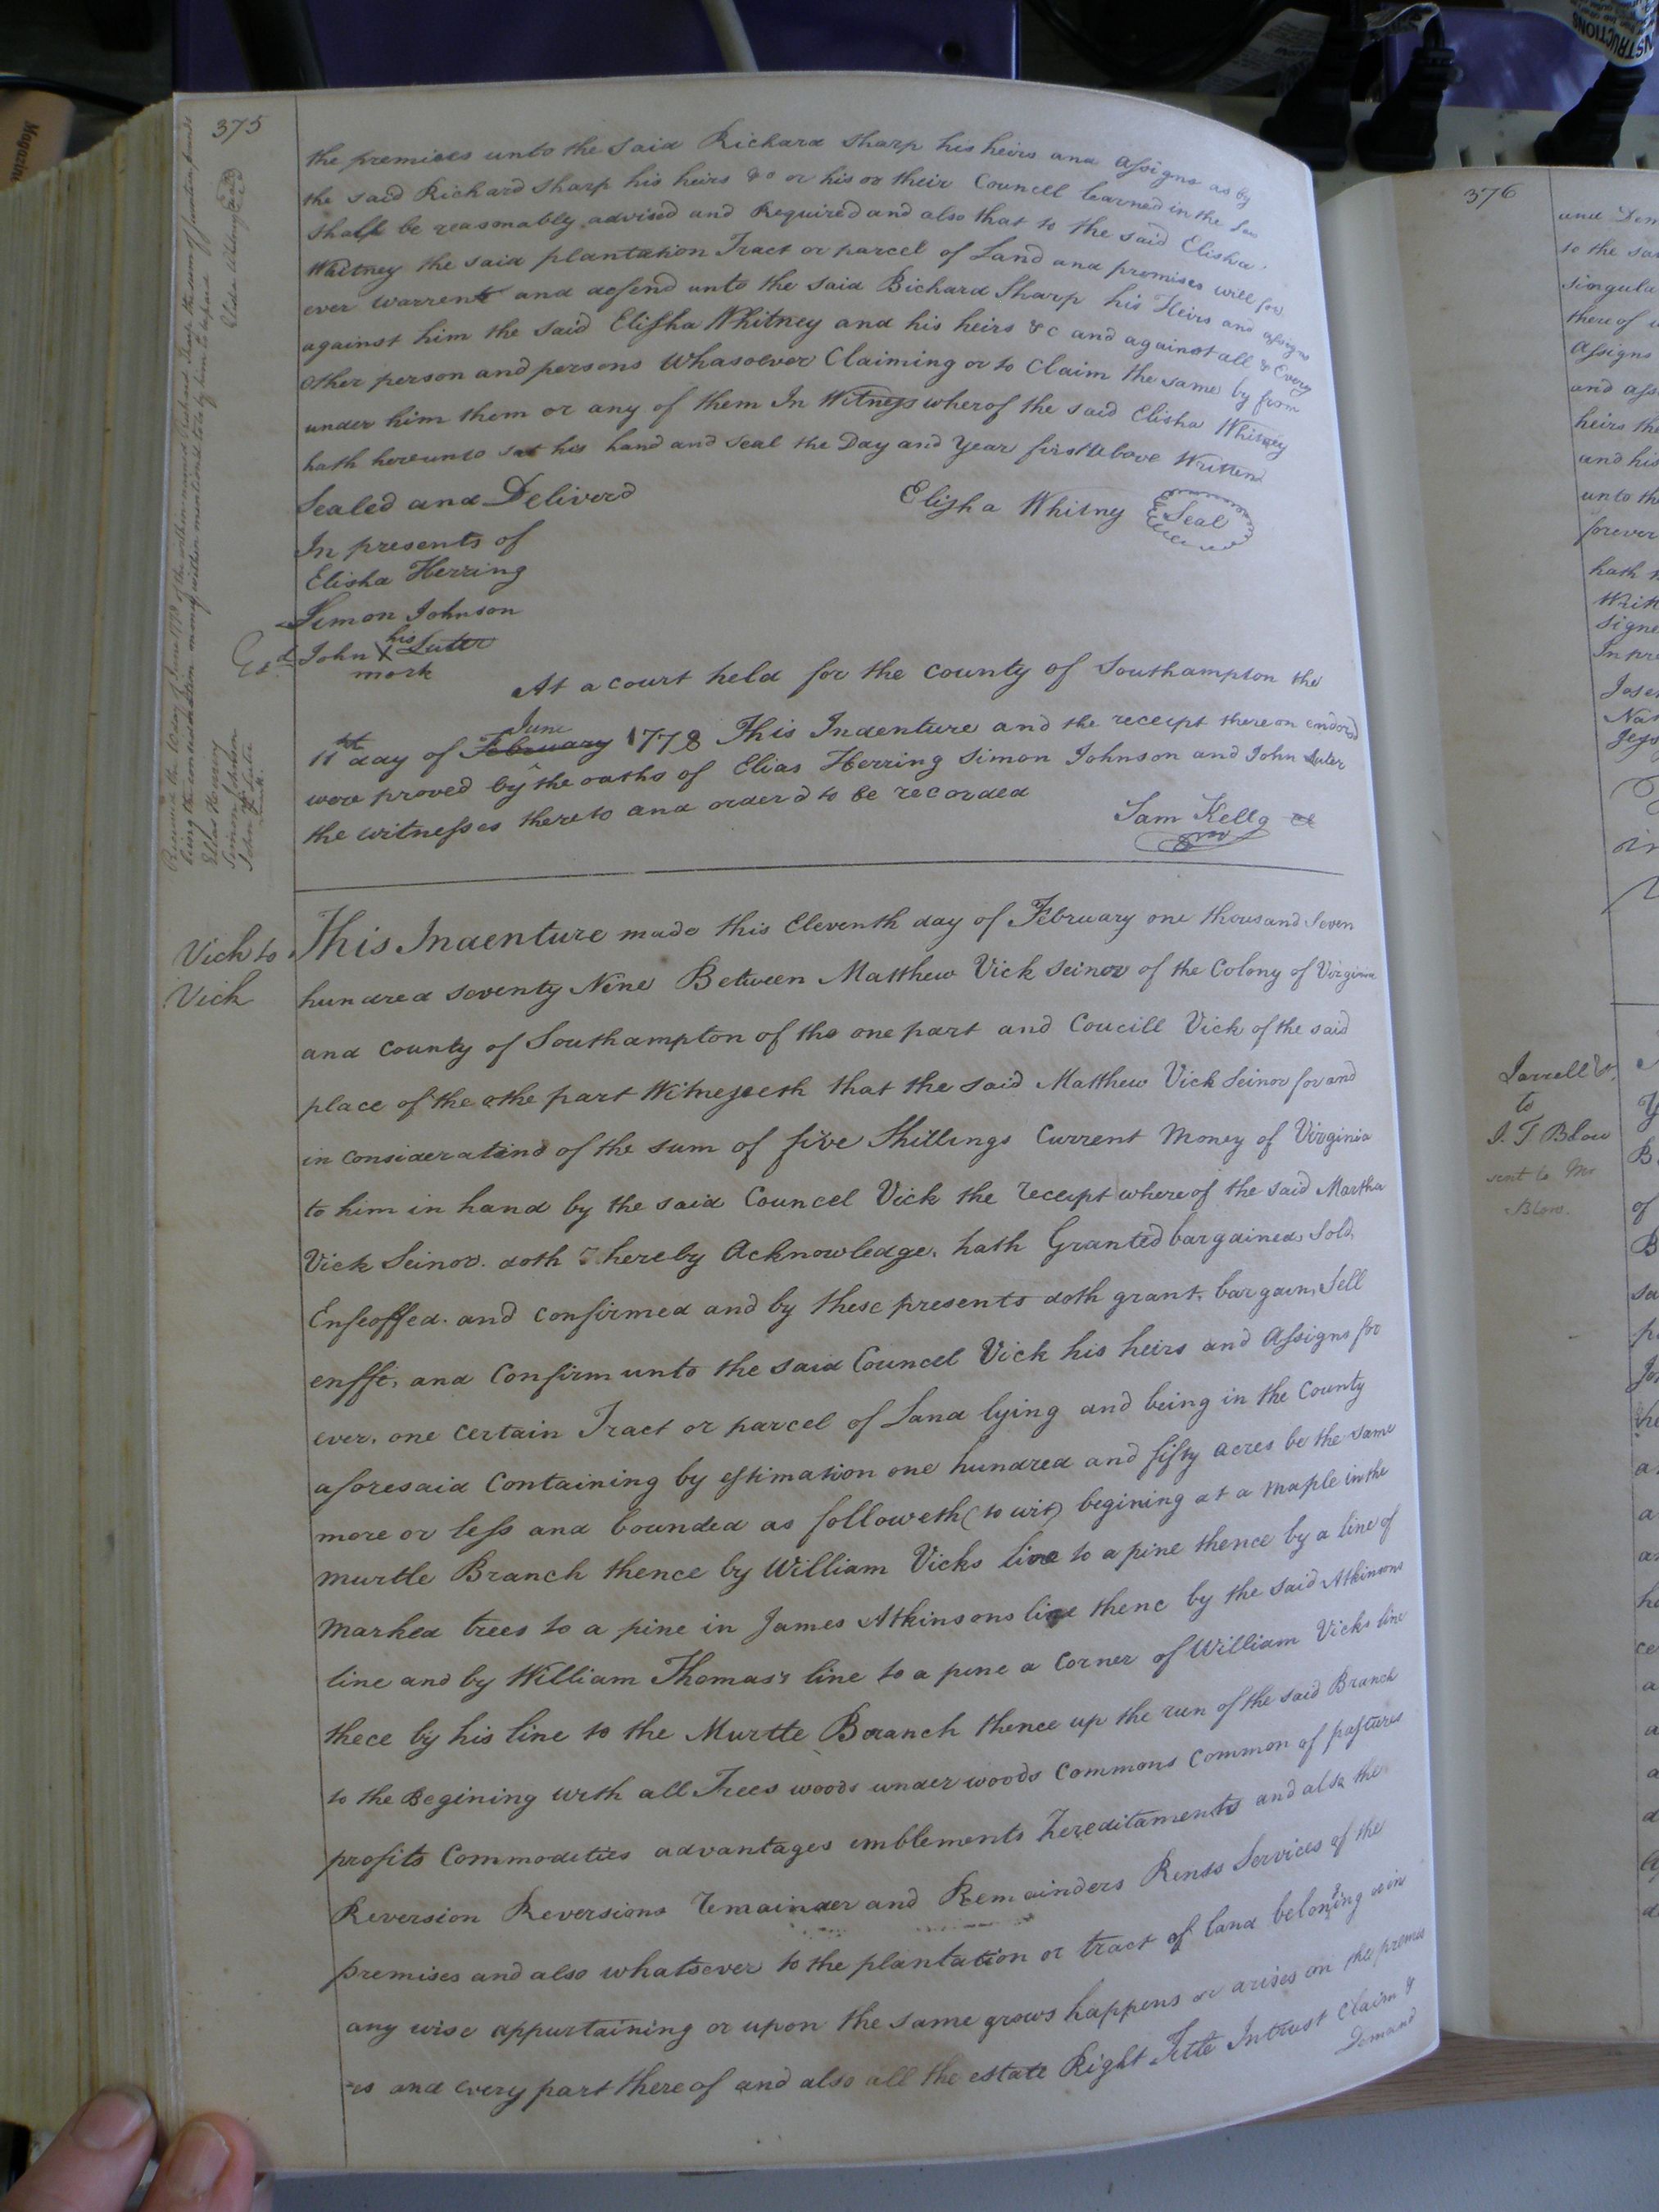 375
the premises unto the said Richard Sharp his heirs and assigns as by
the said Richard Sharp his heirs &c or his or their Councell learned in the Law
shall be reasonably advised and Required and also that to the said Elisha
Whitney the said plantation Tract or parcel of Land and premises will for
ever warrent and defend unto the said Richard Sharp his Heirs and assigns
against him the said Elisha Whitney and his heirs &c and against all & Every
other person and persons Whasoever Claiming or to Claim the same by from
under him them or any of them In Witness wherof the said Elisha Whitney
hath hereunto set his hand and seal the Day and Year first above Written
Sealed and Deliverd
Elisha Whitny Seal
In presents of
Elisha Herring
Simon Johnson
John X Luter
his
mark
At a court held for the County of Southampton the
11th day of February June 1778 This Indenture and the receipt thereon endorsd
were proved by the oaths of Elias Herring Simon Johnson and John Luter
the witnesses thereto and orderd to be recorded
Sam Kello
Received the day of June 1778 of the within named Richard Sharp the sum of pounds
being the consideration money within mentioned to be by him to be paid
Elisha Whitney
Elias Herring
Simon Johnson
John Luter
Vick to
Vick
This Indenture made this Eleventh day of February one thousand Seven
hundred seventy Nine Between Matthew Vick Seinor of the Colony of Virginia
and County of Southampton of the one part and Coucill Vick of the said
place of the othe part Witneseeth that the said Matthew Vick Seinor for and
in consideratind of the sum of five Shillings Current Money of Virginia
to him in hand by the said Councel Vick the receipt whereof the said Martha
Vick Seinor doth hereby Acknowledge, hath Granted bargained, Sold,
Enfeoffed. and confirmed and by these presents doth grant, bargain, Sell
enffe, and Confirm unto the said Councel Vick his heirs and Assigns for
ever, one certain Tract or parcel of Land lying and being in the County
aforesaid Containing by estimation one hundred and fifty acres be the same
more or less and bounded as followeth (to wit) begining at a maple in the
murtle Branch thence by William Vicks line to a pine thence by a line of
marked trees to a pine in James Atkinsons line thenc by the said Atkinsons
line and by William Thomas's line to a pine a Corner of William Vicks line
thece by his line to the Murtle Branch thence up the run of the said Branch
to the Begining with all Trees woods under woods Commons Common of pastures
profits Commodities advantages emblements hereditaments and also the
Reversion Reversions remainder and Remainders Rents Services of the
premises and also whatsever to the plantation or tract of land belonging or in
any wise appurtaining or upon the same grows happens or arises on the premis
=es and every part thereof and also all the estate Right Title Intrust Claim &
Demand
376
Jarrell
to
J. T Blow
sent to Mr
Blow.